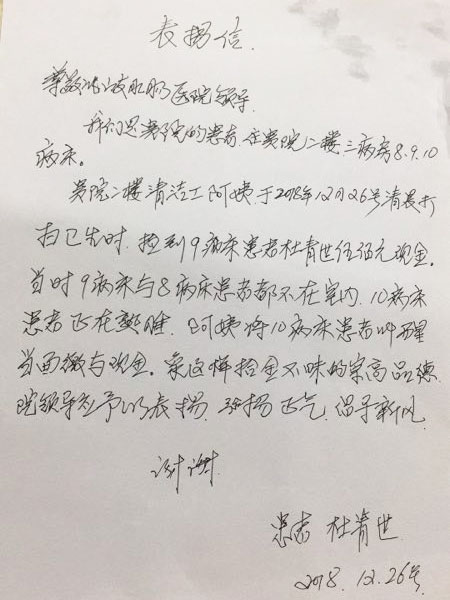 表扬信.
尊敬的仁安肛肠医院领导.
我们是贵院的患者.在贵院二楼三病房8.9.10
病床。
贵院二楼清洁工阿姨于2018年12月26号清晨打
扫卫生时.捡到9病床患者杜青世伍佰元现金.
当时9病床与8病床患者都不在室内.10病床
患者正在熟睡.阿姨将10病床患者叫醒
当面缴与现金.象这样拾金不昧的崇高品德
院领导应予以表扬.弘扬正气.倡导新风.
谢谢
患者 杜青世
2018.12.26号